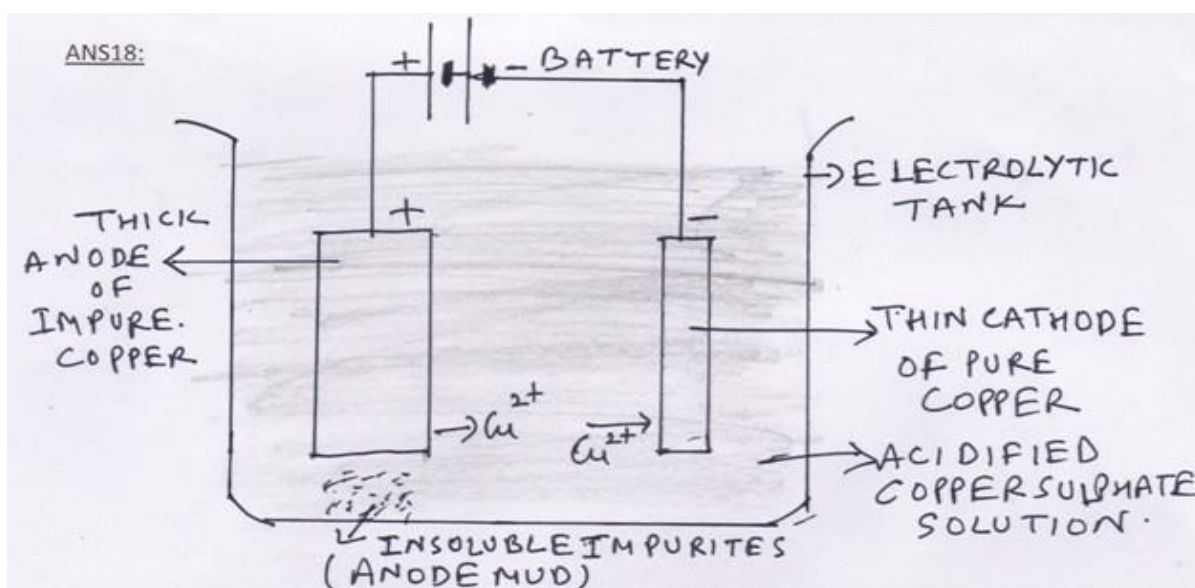 ANS18:
+ - BATTERY
→ ELECTROLYTIC
TANK
+
-
THICK
ANODE
OF
IMPURE.
COPPER
THIN CATHODE
OF PURE
COPPER
→ Cu²⁺
Cu²⁺
ACIDIFIED
COPPER SULPHATE
SOLUTION.
INSOLUBLE IMPURITES
(ANODE MUD)